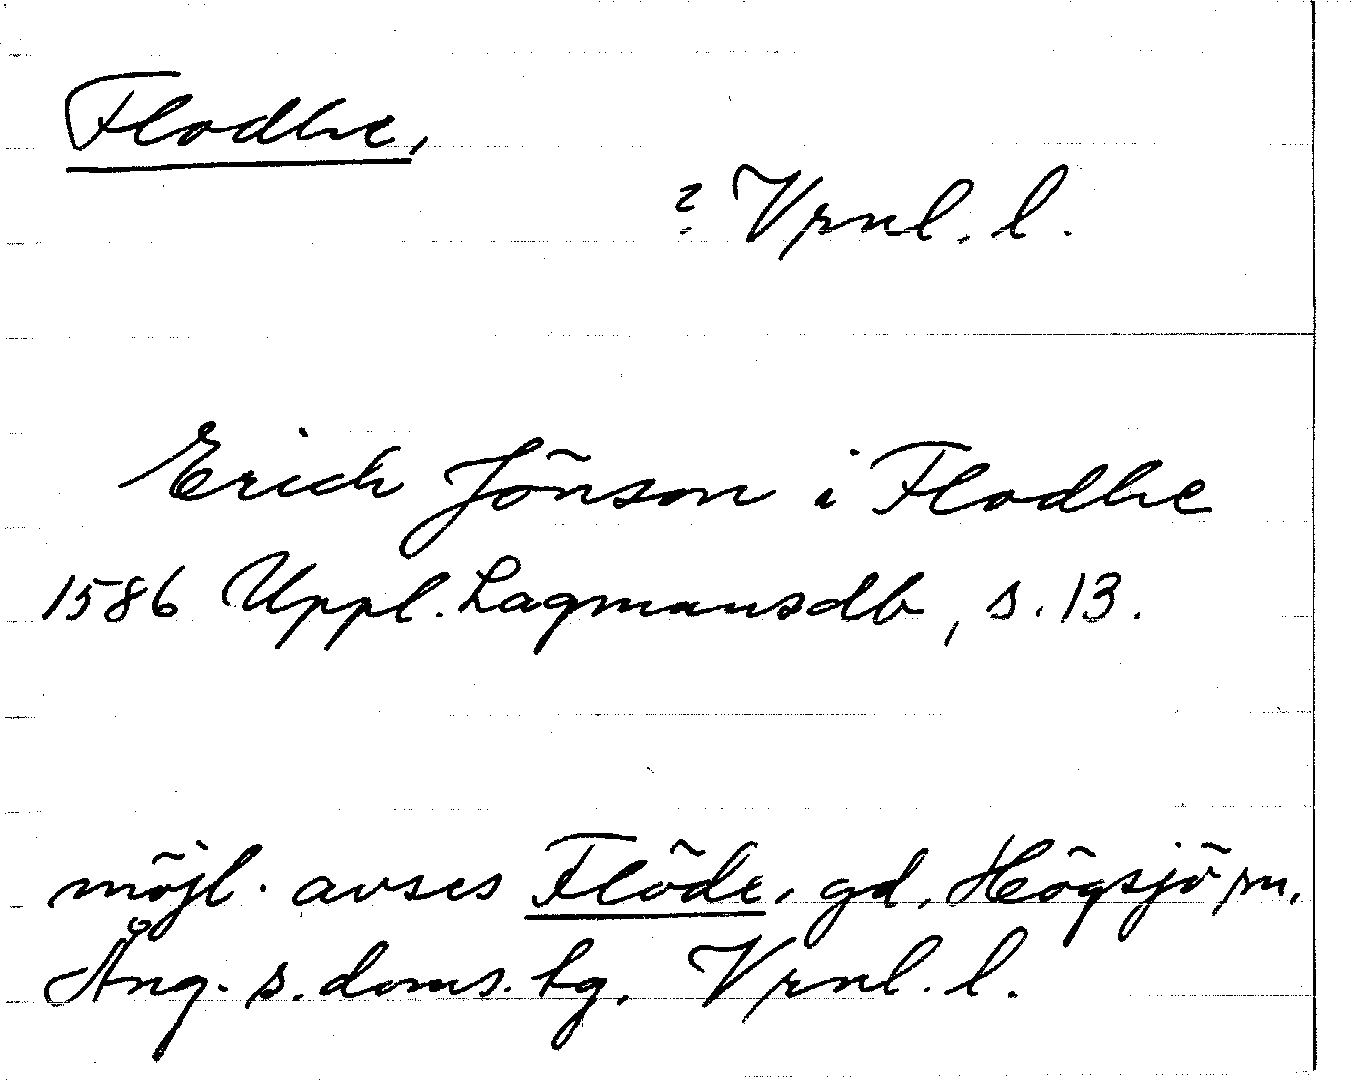 Flodhe,
? Vrnl. l.
Erich Jönson i Flodhe
1586 Uppl. Lagmansdb, s. 13.
möjl. avses Flöde, gd, Högsjö sn,
Ång. s. doms. tg. Vrnl. l.